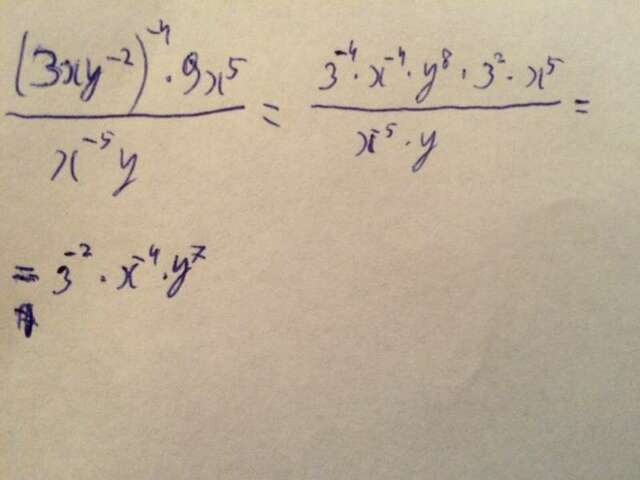 \frac{(3xy^{-2})^{-4} \cdot 9x^5}{x^{-5}y} = \frac{3^{-4} \cdot x^{-4} \cdot y^8 \cdot 3^2 \cdot x^5}{x^{-5} \cdot y} =
= 3^{-2} \cdot x^{-4} \cdot y^7